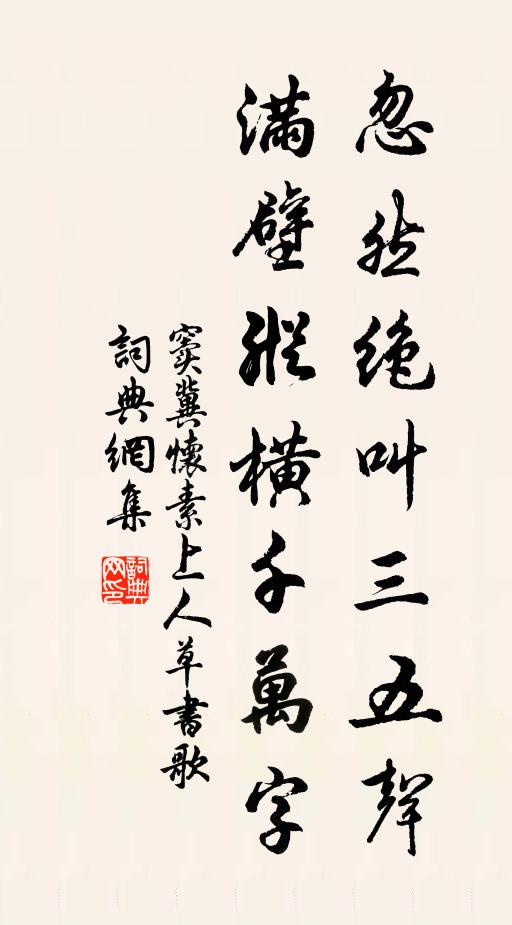 忽然绝叫三五聲
滿壁縱橫千萬字
窦冀懷素上人草書歌
詞典網集
詞典网印